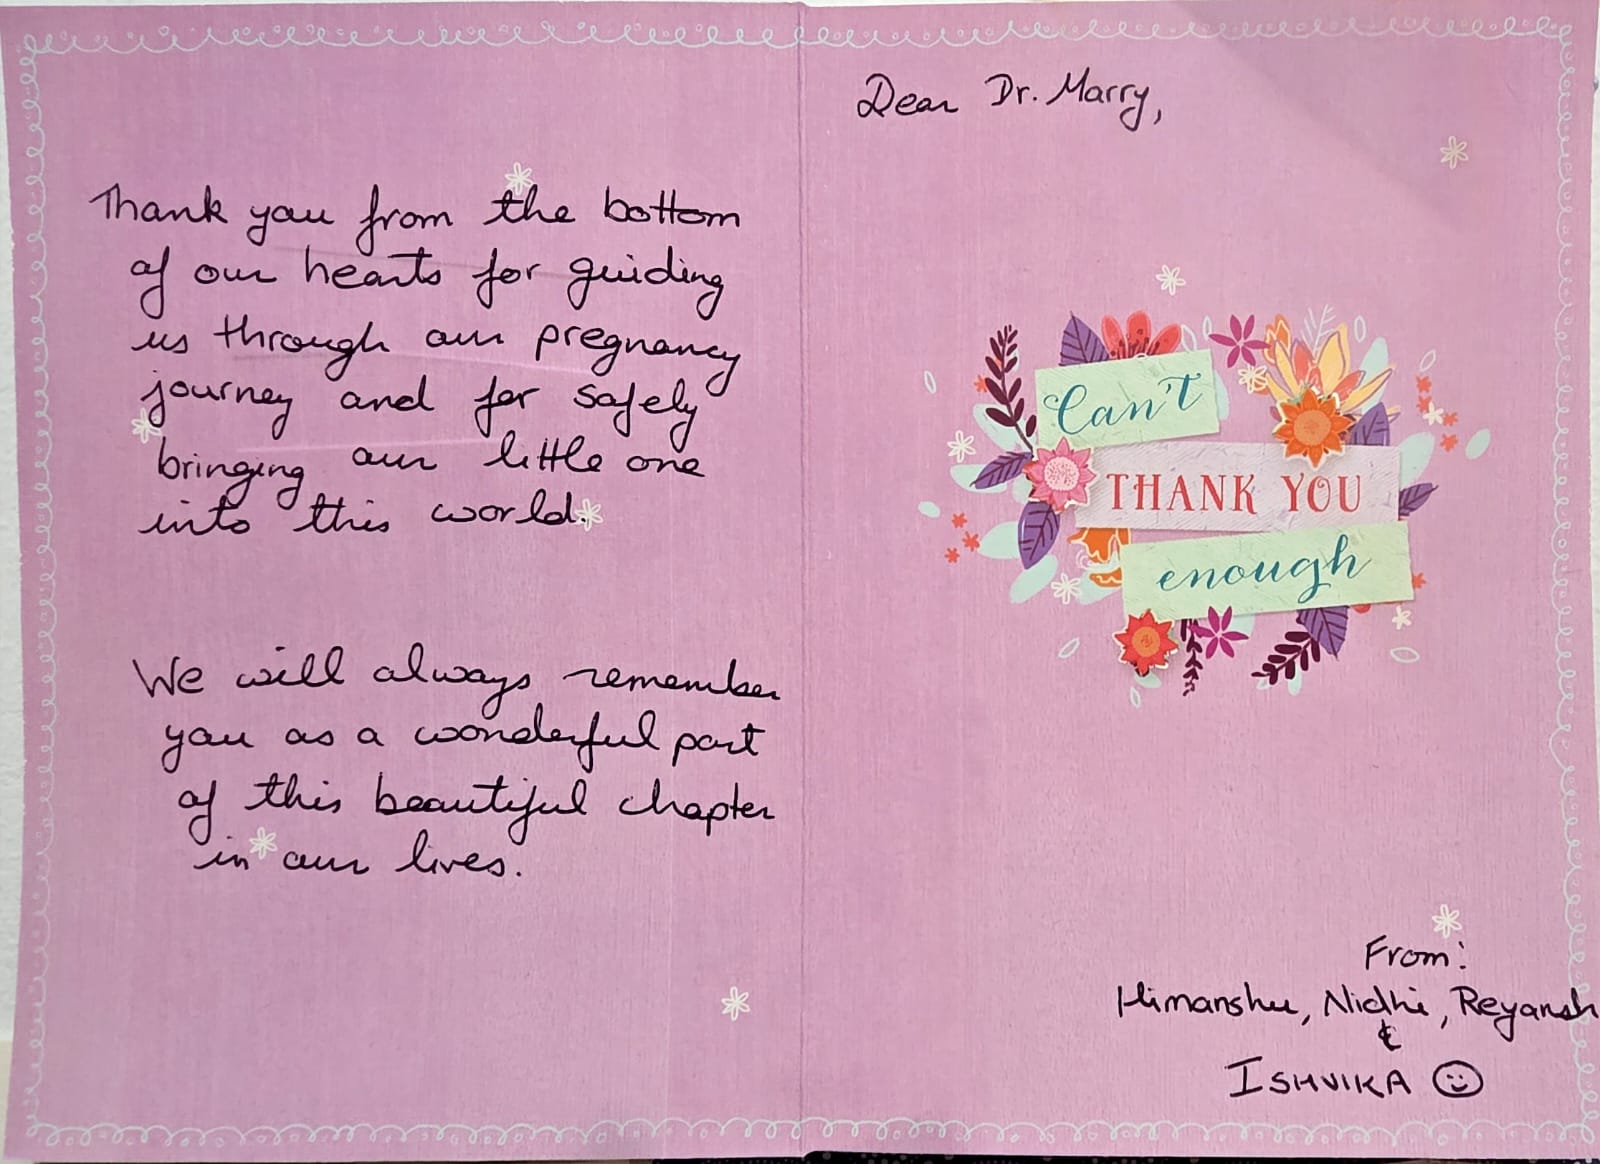 Dear Dr. Marry,
Thank you from the bottom
of our hearts for guiding
us through our pregnancy
journey and for safely
bringing our little one
into this world.
We will always remember
you as a wonderful part
of this beautiful chapter
in our lives.
Can't
THANK YOU
enough
From:
Himanshu, Nidhi, Reyansh
&
ISHVIKA